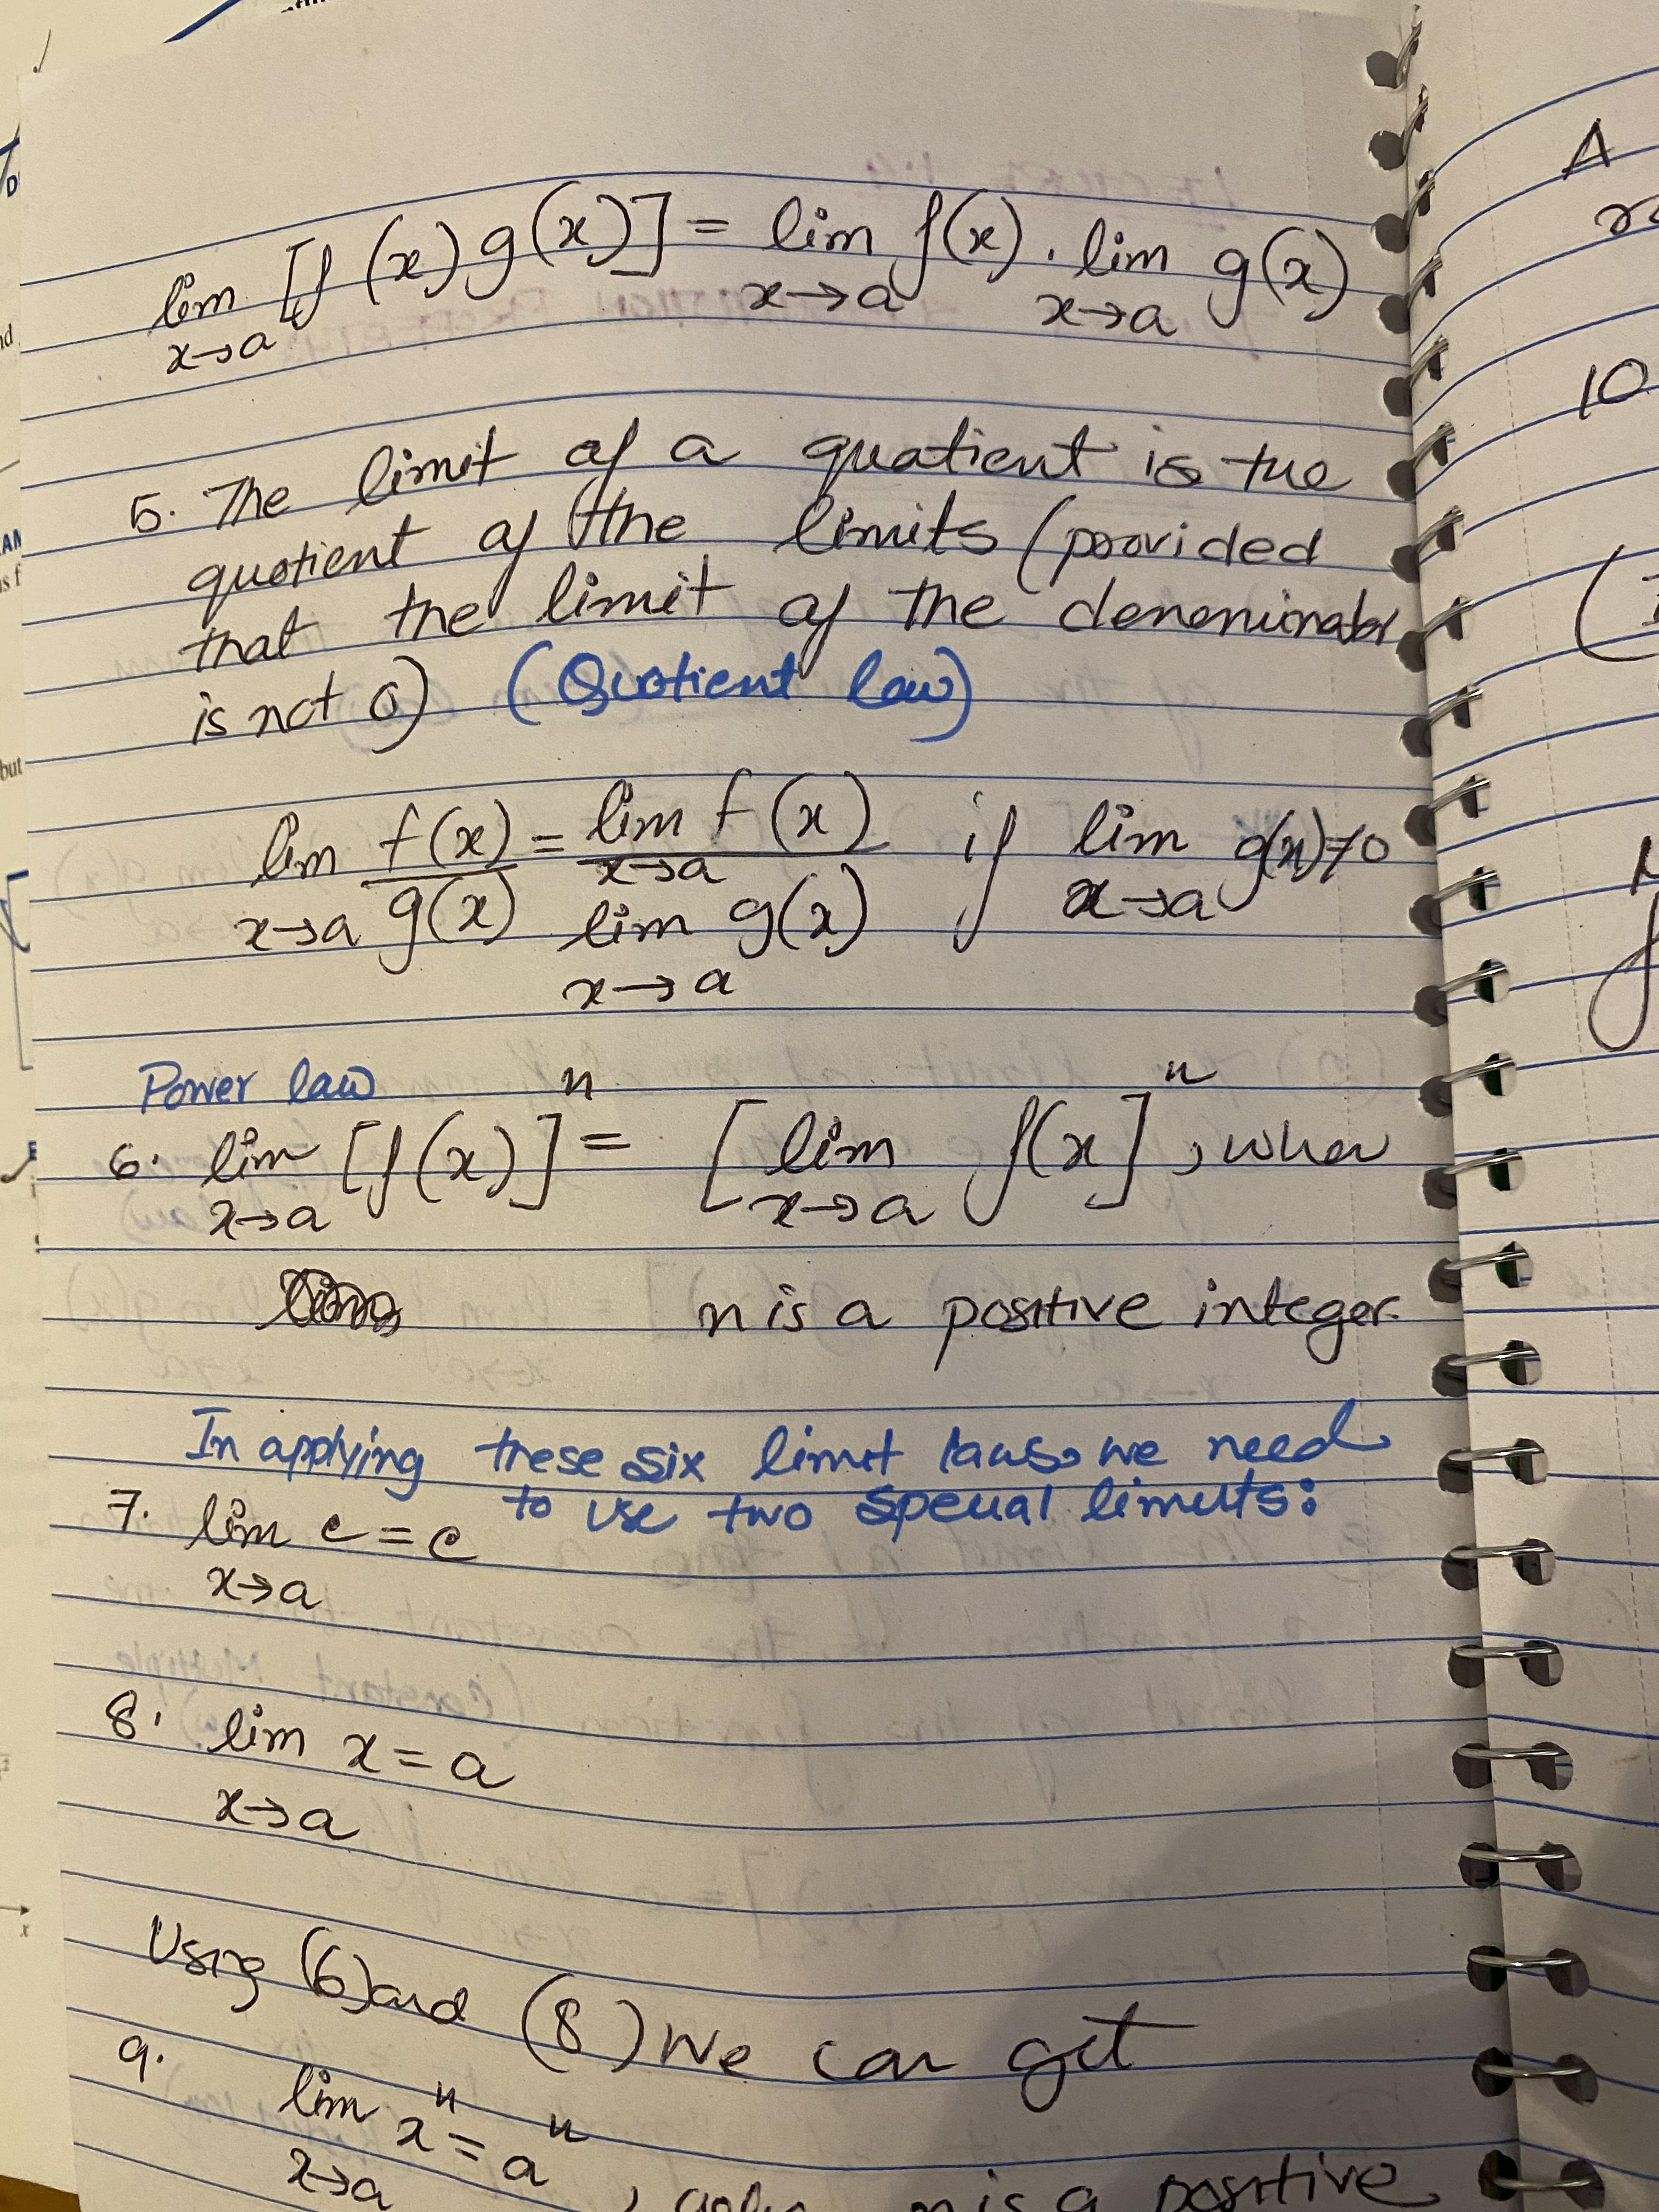 lim [f(x)g(x)] = lim f(x) . lim g(x)
x→a x→a x→a
5. The limit of a quatient is the
quotient of the limits (provided
that the limit of the denominator
is not 0) (Quotient law)
lim f(x)/g(x) = lim f(x) / lim g(x) if lim g(x)≠0
x→a x→a x→a x→a
Power law
6. lim [f(x)]^n = [lim f(x]^n, when
x→a x→a
n is a positive integer.
In applying these six limit laws, we need
to use two special limits:
7. lim c = c
x→a
8. lim x = a
x→a
Using (6) and (8) We can get
9. lim x^n = a^n
x→a , n is a positive
A
10